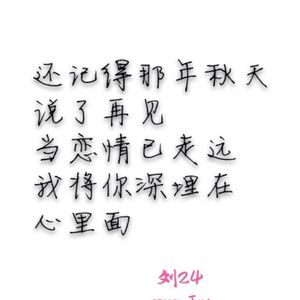 还记得那年秋天
说了再见
当恋情已走远
我将你深埋在
心里面
刘24